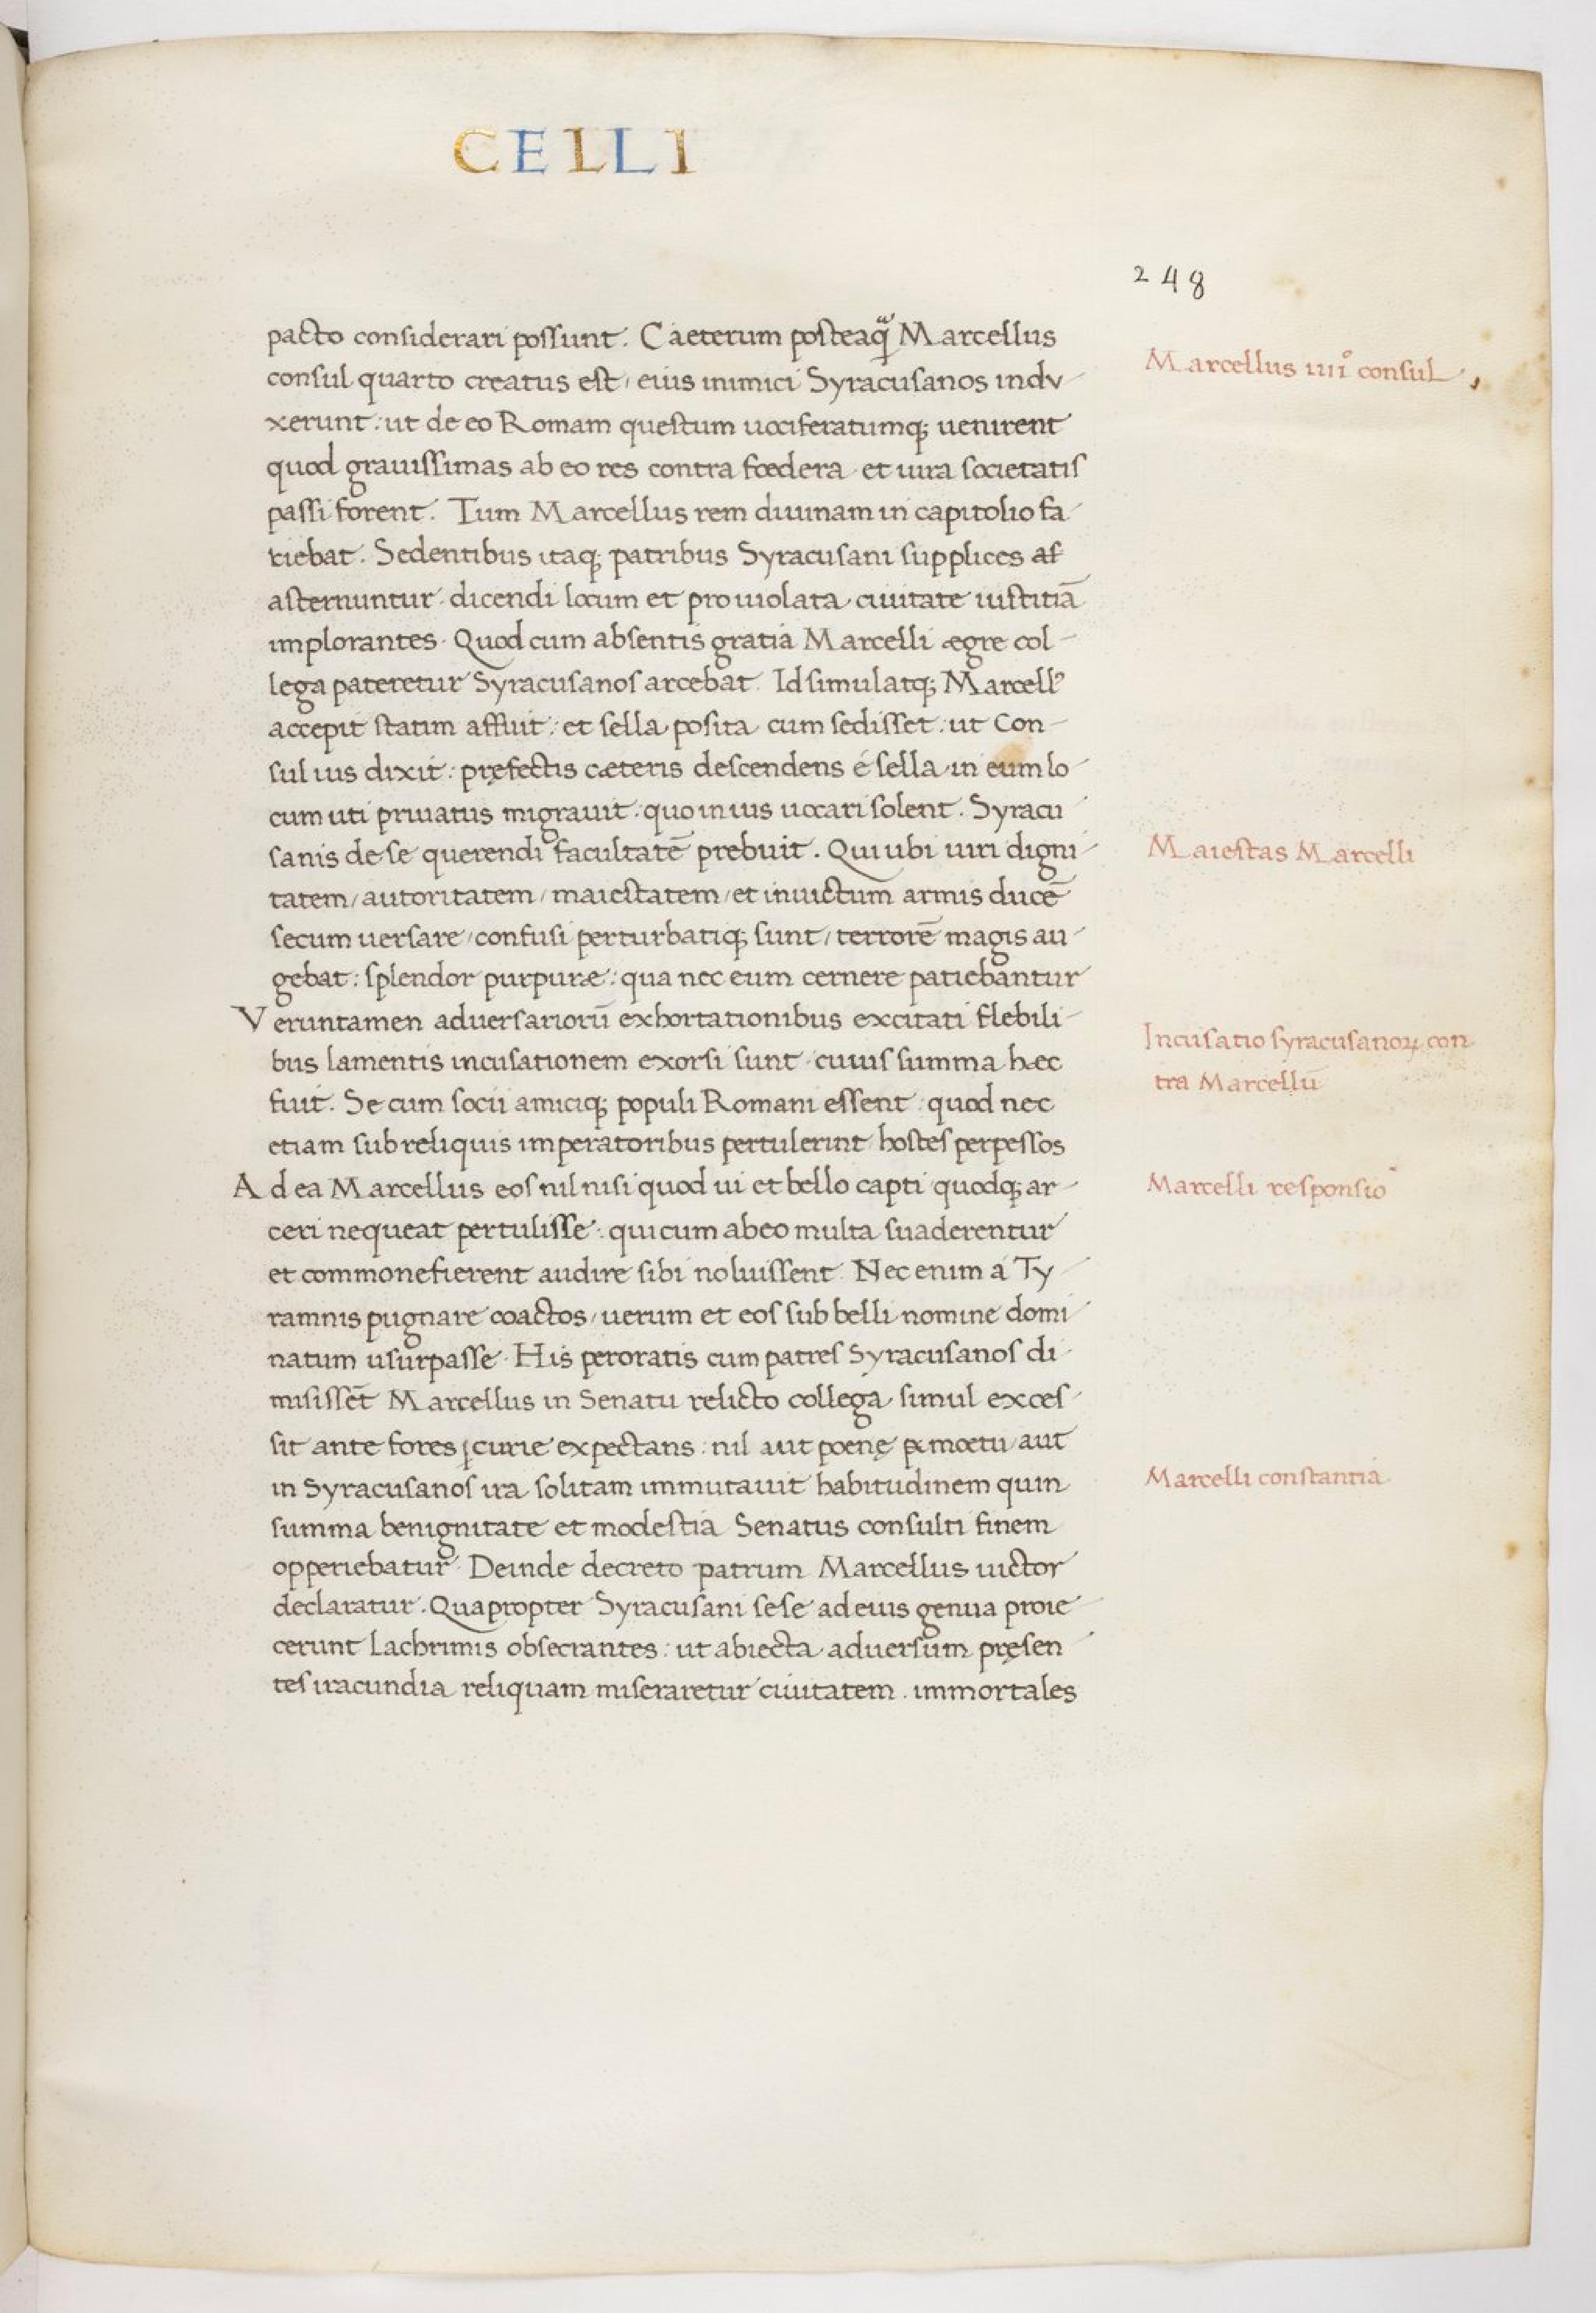 CELLI
248
pacto considerari possunt. Caeterum posteaq̃ Marcellus
Marcellus iiii° consul
consul quarto creatus est, eius inimici Syracusanos indu
xerunt: ut de eo Romam questum uociferatumq; uenirent
quod grauissimas ab eo res contra foedera et iura societatis
passi forent. Tum Marcellus rem diuinam in capitolio fa
tiebat. Sedentibus itaq; patribus Syracusani supplices af
asternuntur dicendi locum et pro uiolata ciuitate iustitiā
implorantes. Quod cum absentis gratia Marcelli ægre col
lega pateretur Syracusanos arcebat. Id simulatq; Marcell⁹
accepit statim affuit: et sella posita cum sedisset: ut Con
sul ius dixit: pręfectis cæteris descendens é sella in eum lo
cum uti priuatus migrauit: quo in ius uocari solent. Syracu
sanis de se querendi facultatē prebuit. Qui ubi uiri digni
Maiestas Marcelli
tatem, autoritatem, maiestatem, et inuictum armis ducē
secum uersare, confusi perturbatiq; sunt, terrorē magis au
gebat: splendor purpuræ: qua nec eum cernere patiebantur
Veruntamen aduersariorū exhortationibus excitati flebili
Incusatio syracusanoꝝ con
tra Marcellū
bus lamentis incusationem exorsi sunt. cuius summa hæc
fuit. Se cum socii amiciq; populi Romani essent: quod nec
etiam sub reliquis imperatoribus pertulerint hostes perpessos
Ad ea Marcellus eos nil nisi quod ui et bello capti quodq; ar
Marcelli responsio
ceri nequeat pertulisse: qui cum ab eo multa suaderentur
et commonefierent audire sibi noluissent. Nec enim á Ty
ramnis pugnare coactos, uerum et eos sub belli nomine domi
natum usurpasse. His peroratis cum patres Syracusanos di
misissēt Marcellus in Senatu relicto collega simul exces
sit ante fores curie expectans: nil aut poenę moetu aut
in Syracusanos ira solitam immutauit habitudinem quin
Marcelli constantia
summa benignitate et modestia Senatus consulti finem
opperiebatur. Deinde decreto patrum Marcellus uictor
declaratur. Quapropter Syracusani sese ad eius genua proie
cerunt Lachrimis obsecrantes: ut abiecta aduersum pręsen
tes iracundia reliquam miseraretur ciuitatem. immortales